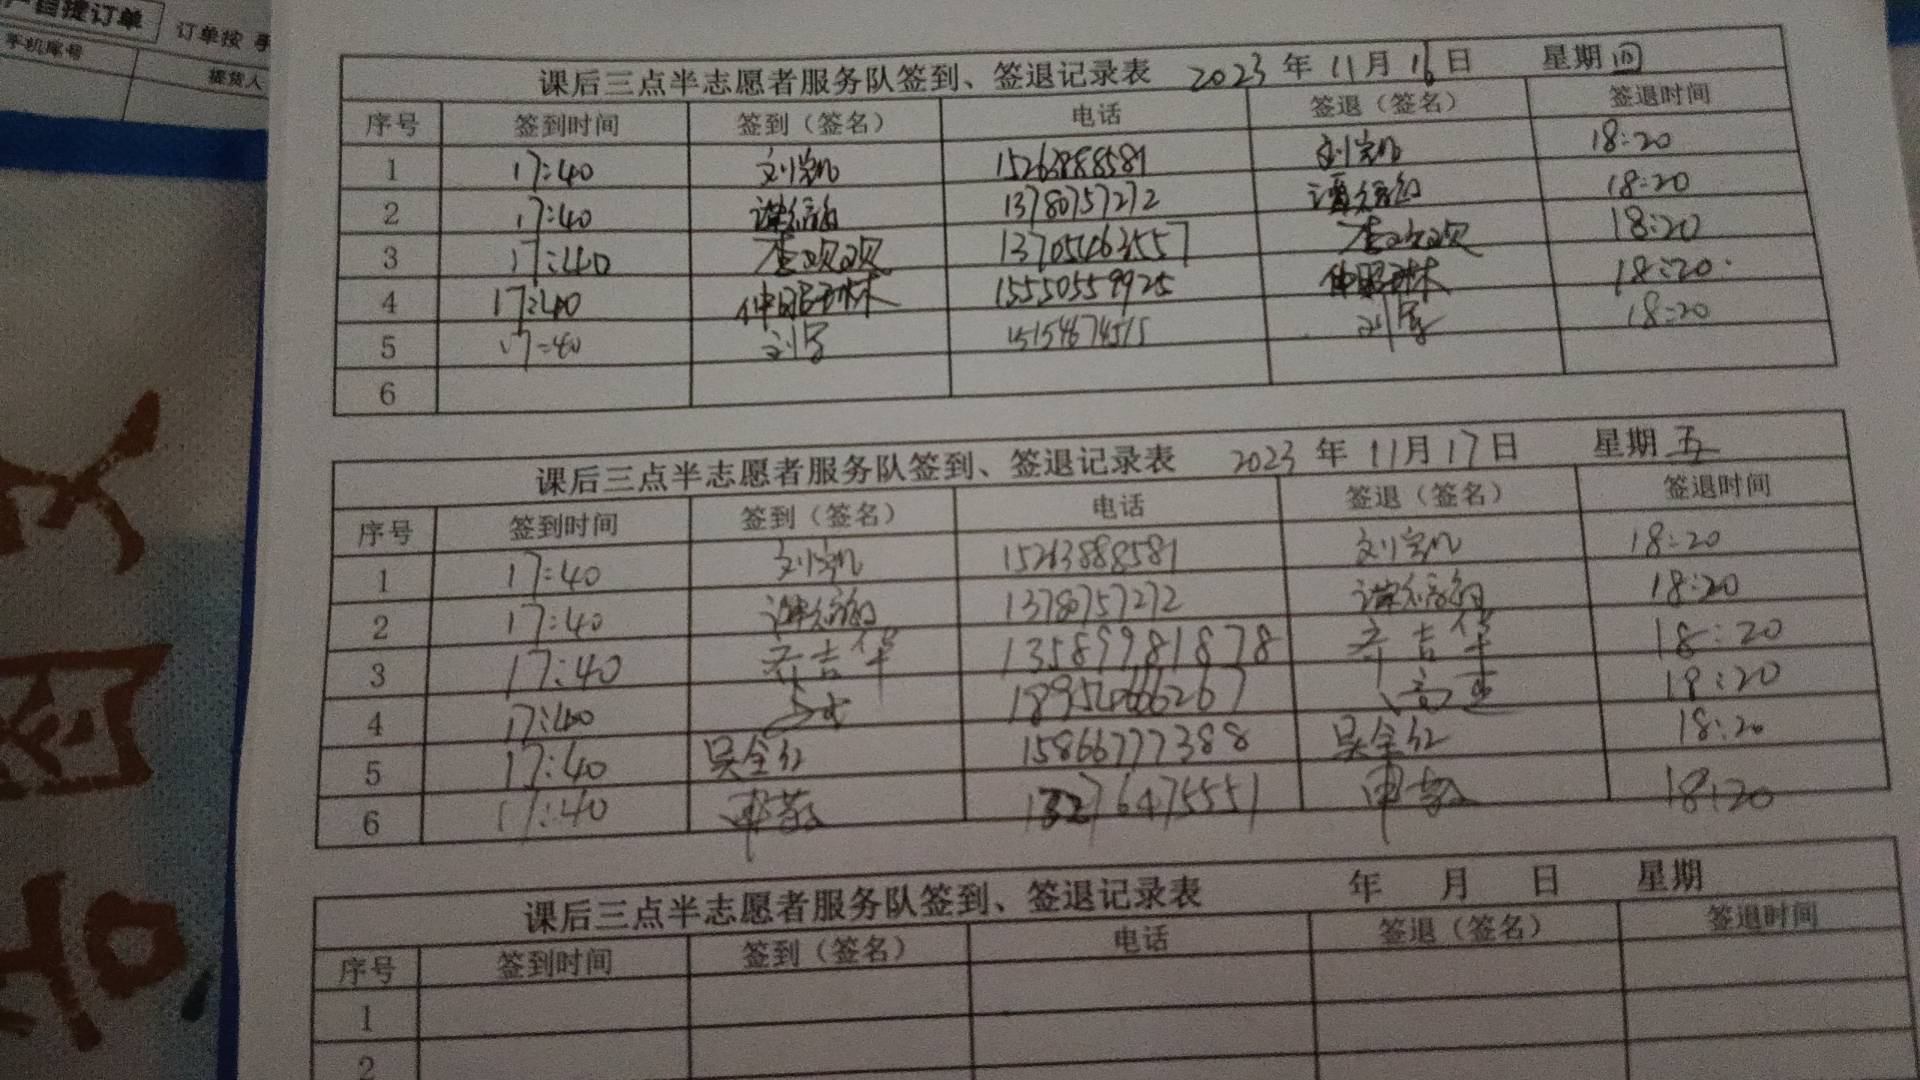 自提订单
订单按
手机尾号
提货人
课后三点半志愿者服务队签到、签退记录表 2023 年 11 月 16 日 星期 四
序号 签到时间 签到（签名） 电话 签退（签名） 签退时间
1 17:40 15263888581 18:20
2 17:40 13780757272 18:20
3 17:40 李欢欢 13705463557 李欢欢 18:20
4 17:40 15550559925 18:20
5 17:40 15154674515 18:20
6
课后三点半志愿者服务队签到、签退记录表 2023 年 11 月 17 日 星期 五
序号 签到时间 签到（签名） 电话 签退（签名） 签退时间
1 17:40 15263888581 18:20
2 17:40 13780757272 18:20
3 17:40 13589981878 18:20
4 17:40 18:20
5 17:40 吴全红 15866777388 吴全红 18:20
6 17:40 18:20
课后三点半志愿者服务队签到、签退记录表 年 月 日 星期
序号 签到时间 签到（签名） 电话 签退（签名） 签退时间
1
2